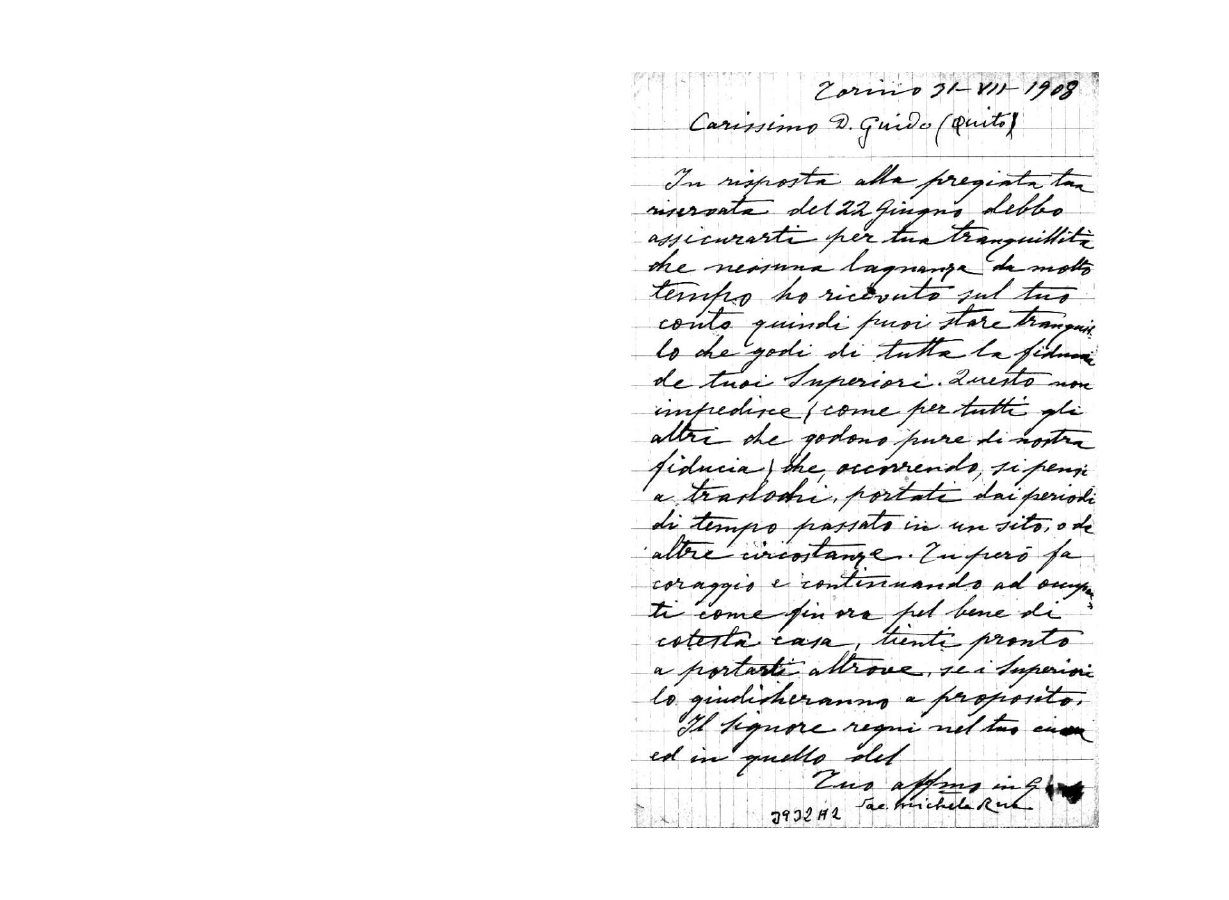 Torino 31-VII-1908
Carissimo D. Guido (Quito)
In risposta alla pregiata tua
riservata del 22 Giugno debbo
assicurarti per tua tranquillità
che nessuna lagnanza da molto
tempo ho ricevuto sul tuo
conto quindi puoi stare tranquil-
lo che godi di tutta la fiducia
de tuoi Superiori. Questo non
impedisce (come per tutti gli
altri che godono pure di nostra
fiducia) che, occorrendo, si pensi
a traslochi, portati dai periodi
di tempo passato in un sito, o da
altre circostanze. Tu però fa
coraggio e continuando ad occupar-
ti come fin ora pel bene di
cotesta casa, tienti pronto
a portarti altrove, se i Superiori
lo giudicheranno a proposito.
Il Signore regni nel tuo cuore
ed in quello del
Tuo affmo in G
Sac. Michele Rua
3932 A2